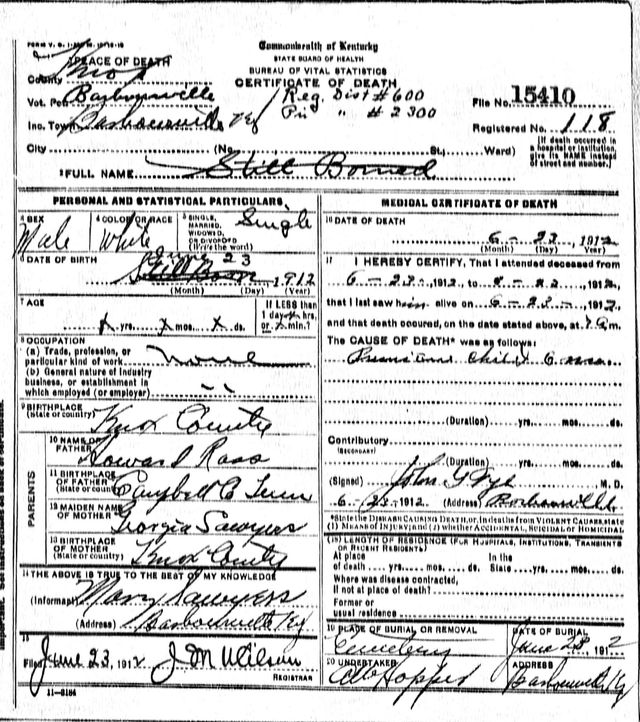 FORM V. S. 1-
Commonwealth of Kentucky
STATE BOARD OF HEALTH
BUREAU OF VITAL STATISTICS
CERTIFICATE OF DEATH
1 PLACE OF DEATH
County Knox
Vot. Pct Barbourville
Inc. Town Barbourville Ky
City (No. St., Ward)
Reg. Dist #600
Pri " #2300
File No. 15410
Registered No. 118
[If death occurred in a hospital or institution, give its NAME instead of street and number.]
2 FULL NAME Still Borned
PERSONAL AND STATISTICAL PARTICULARS
3 SEX Male
4 COLOR OR RACE White
5 SINGLE, MARRIED, WIDOWED, OR DIVORCED (Write the word) Single
6 DATE OF BIRTH June 23 1912
Still Born
(Month) (Day) (Year)
7 AGE
x yrs. x mos. x ds.
If LESS than 1 day x hrs. or x min.?
8 OCCUPATION
(a) Trade, profession, or particular kind of work none
(b) General nature of industry business, or establishment in which employed (or employer) --
9 BIRTHPLACE (State or country) Knox County
PARENTS
10 NAME OF FATHER Howard Ross
11 BIRTHPLACE OF FATHER (State or country) Campbell C Tenn
12 MAIDEN NAME OF MOTHER Georgia Sawyers
13 BIRTHPLACE OF MOTHER (State or country) Knox County
14 THE ABOVE IS TRUE TO THE BEST OF MY KNOWLEDGE
(Informant) Mary Sawyers
(Address) Barbourville Ky
15
Filed June 23, 1912 J M Wilson
REGISTRAR
11-3184
MEDICAL CERTIFICATE OF DEATH
16 DATE OF DEATH
6-23, 1912
(Month) (Day) (Year)
17 I HEREBY CERTIFY, That I attended deceased from
6-23-, 1912, to 6-23, 1912,
that I last saw him alive on 6-23-, 1912,
and that death occured, on the date stated above, at m.
The CAUSE OF DEATH* was as follows:
Child
(Duration) yrs. mos. ds.
Contributory
(SECONDARY)
(Duration) yrs. mos. ds.
(Signed) John M. D.
6-23, 1912 (Address) Barbourville
*State the DISEASE CAUSING DEATH, or, in deaths from VIOLENT CAUSES, state (1) MEANS OF INJURY; and (2) whether ACCIDENTAL, SUICIDAL or HOMICIDAL
18 LENGTH OF RESIDENCE (FOR HOSPITALS, INSTITUTIONS, TRANSIENTS OR RECENT RESIDENTS)
At place of death yrs. mos. ds. In the State yrs. mos. ds.
Where was disease contracted, if not at place of death?
Former or usual residence
19 PLACE OF BURIAL OR REMOVAL Cemetery
DATE OF BURIAL June 23, 1912
20 UNDERTAKER Hopper
ADDRESS Barbourville Ky